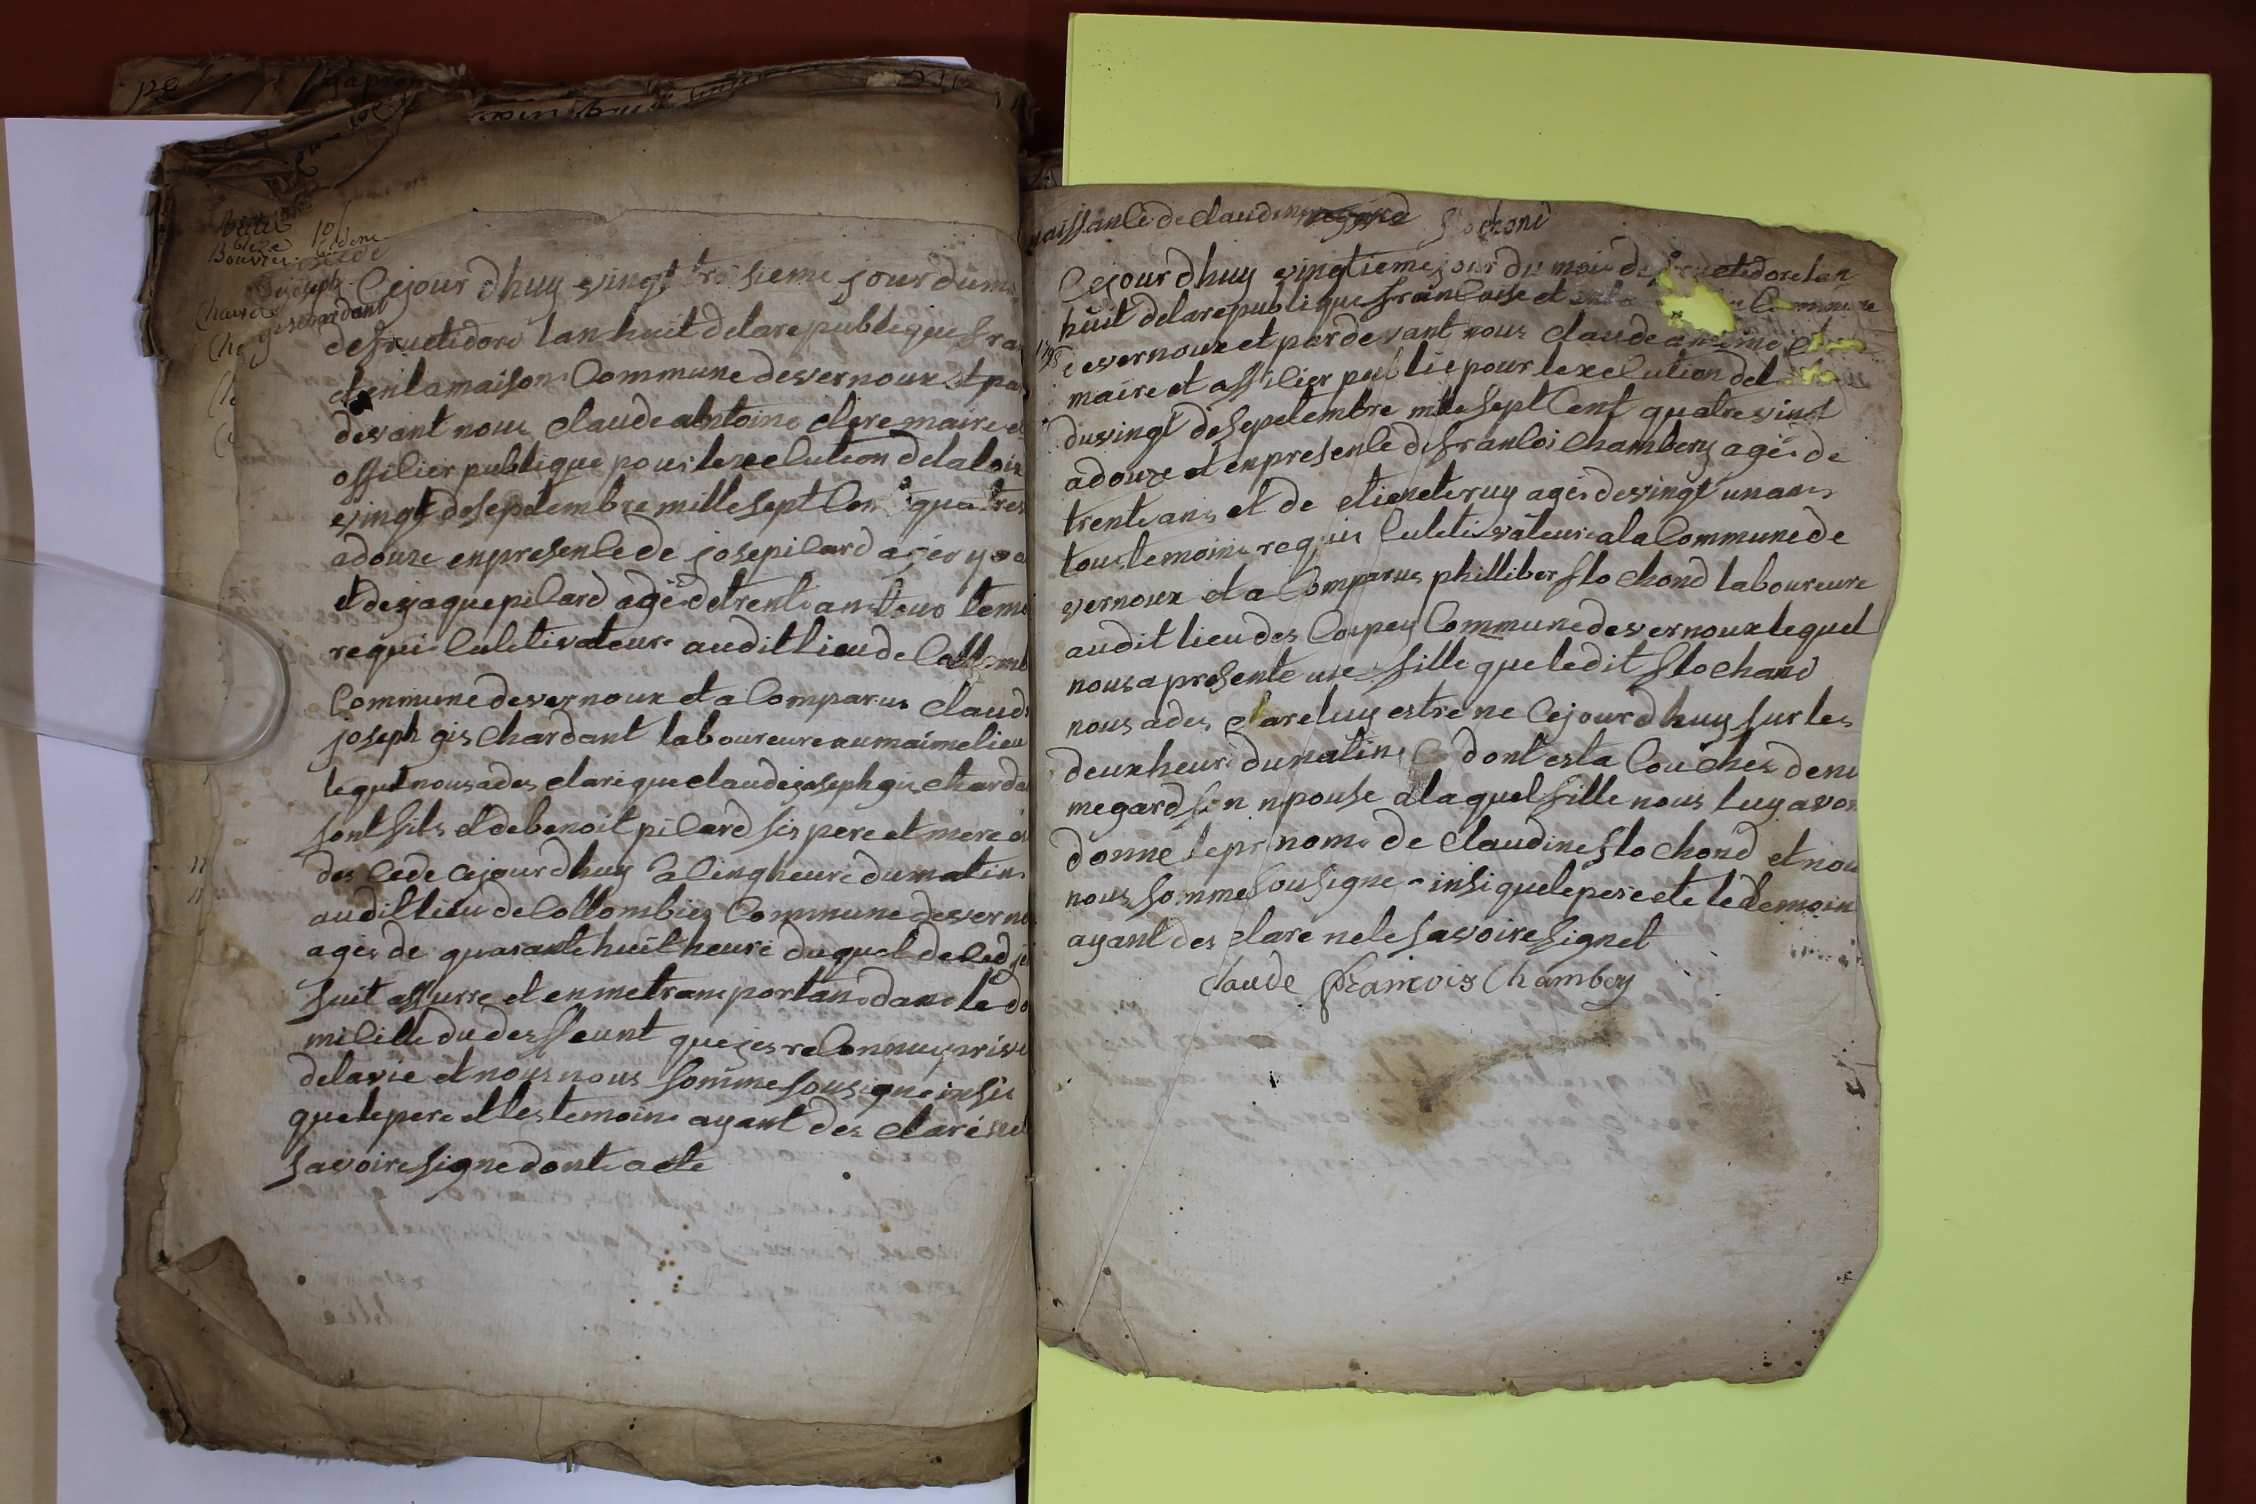 Cejour dhuy vingt troisieme jour dumoi
defructidore lan huit delarepublique fra
et enlamaison Commune devernoux et pa
devant nous claude abntoine clere maire e
offilier publique pour lexelution delaloix
vingt desepetembre mille sept Cent quatrev
adouze enpresenlede josepilard agér
et dejaquepilard agés detrente ans tous temoi
requi Culetivateure audit lieu de
Commune devernoux et a Comparus claude
joseph gischardant laboureure aumaime lieu
lequel nous a des clare que claude joseph gischarda
sont fils et debenoit pilard ses pere et mere
des cede cejourdhuy a cinq heure dumatin
audit lieu de Collombier Commune deverno
ages de quarante huit heure duquel deced je
suit assurre et enmetransportans dans le do
milille du deffeunt que jes reconnuy prive
delavie et nous nous somme sousigne insit
que le pere et les temoins ayant des clare ne
savoire signe dont acte
naissanle de claudine flochond
Cejour dhuy vingtieme jour du mois de fructidore lan
huit delarepublique franlaise et Commune
devernoux et pardevant nous claude antoine
maire et offilier publi pour lexelution del
duvingt desepetembre mille sept Cent quatre vingt
adouze et enpresenle defranloi chambery agés de
trente ans et de etiene teruy agés devingt unans
tous temoins requis Culetivateure ala Commune de
vernoux et a Comparus philliber flochond laboureure
audit lieu des Coupey Commune devernoux lequel
nous a presente une fille que ledit flochand
nous a des clareluy estre ne cejourdhuy sur les
deux heure dumatin dont esla Couches deni
megard son npouse a laquel fille nous luy avon
donne le pre nom de claudine flochond et nou
nous somme sousigne insi que le pere ete le temoin
ayant des clare ne le savoire signet
claude francois Chambey